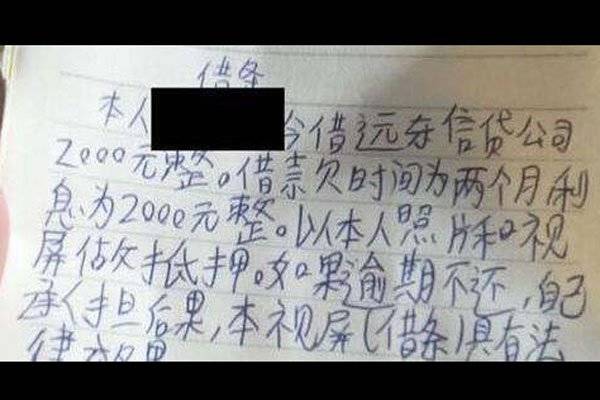 借条
本人 今借远信贷公司
2000元整。借款时间为两个月利
息为2000元整。以本人照片和视
屏做抵押。如果逾期不还，自己
承担后果，本视屏（借条）具有法
律效果